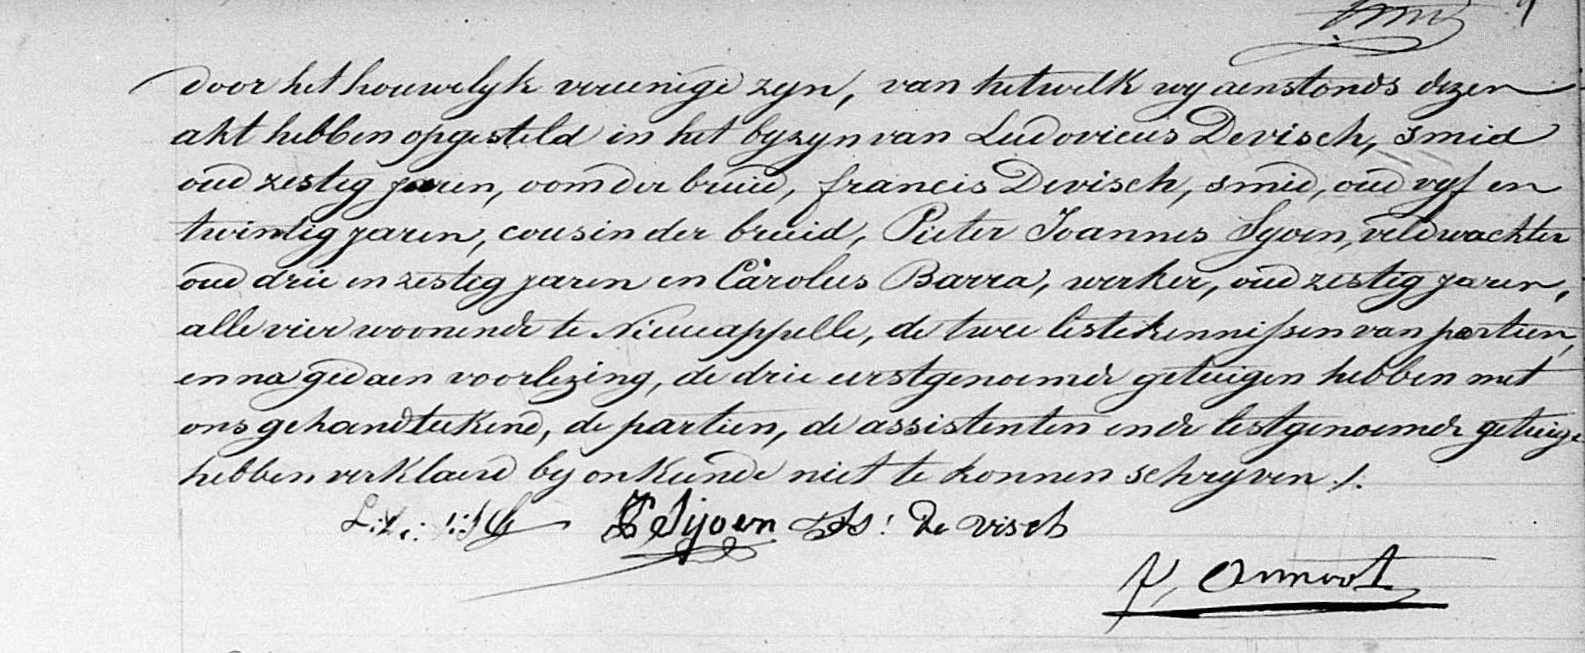 door het houwelyk vereenigd zyn, van hetwelk wy aenstonds dezen
akt hebben opgesteld in het byzyn van Ludovicus Devisch, smid
oud zestig jaren, oom der bruid, francis Devisch, smid, oud vyf en
twintig jaren, cousin der bruid, Pieter Joannes Syoen, veldwachter
oud drie en zestig jaren en Carolus Barra, werker, oud zestig jaren,
alle vier woonende te Nieucappelle, de twee lestekennissen van partien,
en na gedaen voorlezing, de drie eerstgenoemde getuigen hebben met
ons gehandteekend, de partien, de assistenten en de lestgenoemde getuige
hebben verklaerd by onkunde niet te konnen schryven ./.
Sijoen fs! de visch